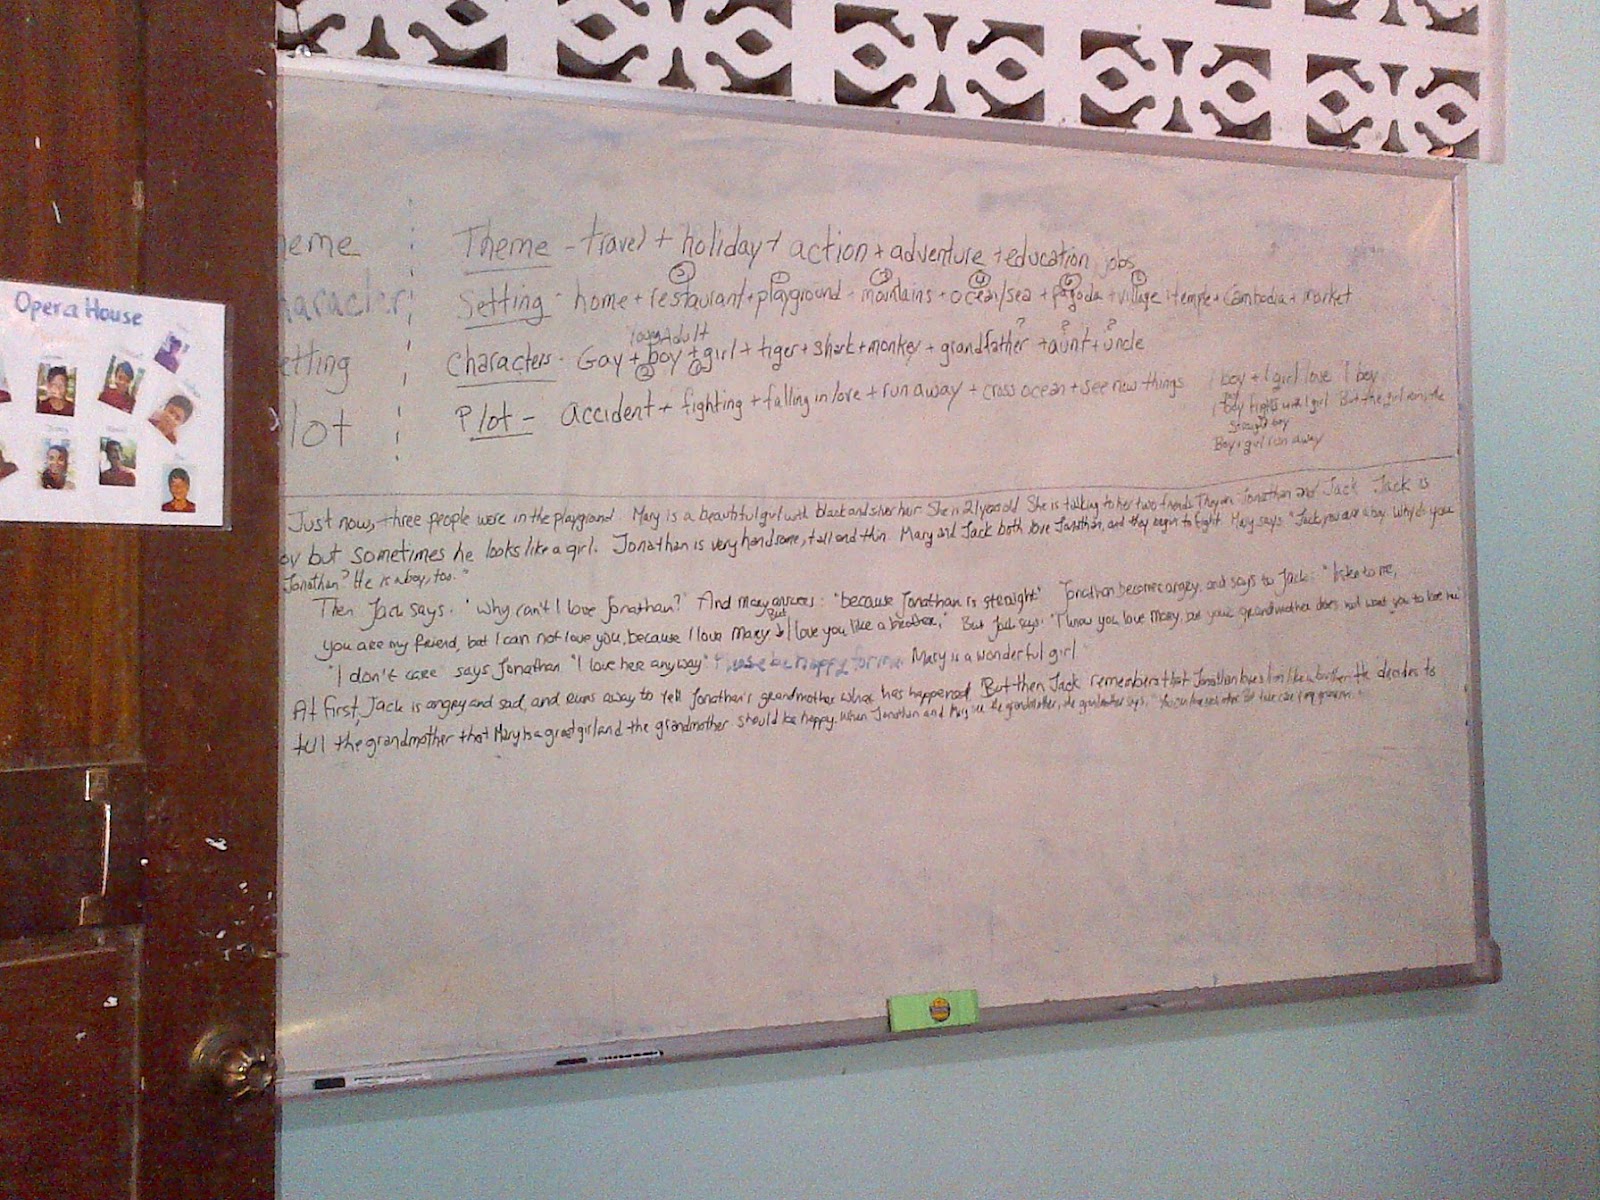 Opera House
heme : Theme - travel + holiday + action + adventure + education jobs
haracter : Setting - home + restaurant + playground + mountains + ocean/sea + pagoda + village + temple + Cambodia + market
Young Adult
etting : Characters - Gay + boy + girl + tiger + shark + monkey + grandfather + aunt + uncle
lot : Plot - accident + fighting + falling in love + run away + cross ocean + see new things
1 boy + 1 girl love 1 boy
1 boy fights with 1 girl But the girl wins the
straight boy
Boy + girl run away
Just now, three people were in the playground. Mary is a beautiful girl with black and silver hair. She is 21 years old. She is talking to her two friends. They are Jonathan and Jack. Jack is
oy but sometimes he looks like a girl. Jonathan is very handsome, tall and thin. Mary and Jack both love Jonathan, and they begin to fight. Mary says: "Jack, you are a boy. Why do you
Jonathan? He is a boy, too."
Then Jack says. "Why can't I love Jonathan?" And Mary answers: "because Jonathan is straight" Jonathan becomes angry, and says to Jack: "listen to me,
But
you are my friend, but I can not love you, because I love Mary I love you like a brother." But Jack says: "I know you love Mary, but your grandmother does not want you to love her."
"I don't care" says Jonathan. "I love her anyway" Please be happy for me. Mary is a wonderful girl
At first, Jack is angry and sad, and runs away to tell Jonathan's grandmother what has happened. But then Jack remembers that Jonathan loves him like a brother. He decides to
tell the grandmother that Mary is a great girl and the grandmother should be happy. When Jonathan and Mary see the grandmother, the grandmother says, "You can love each other